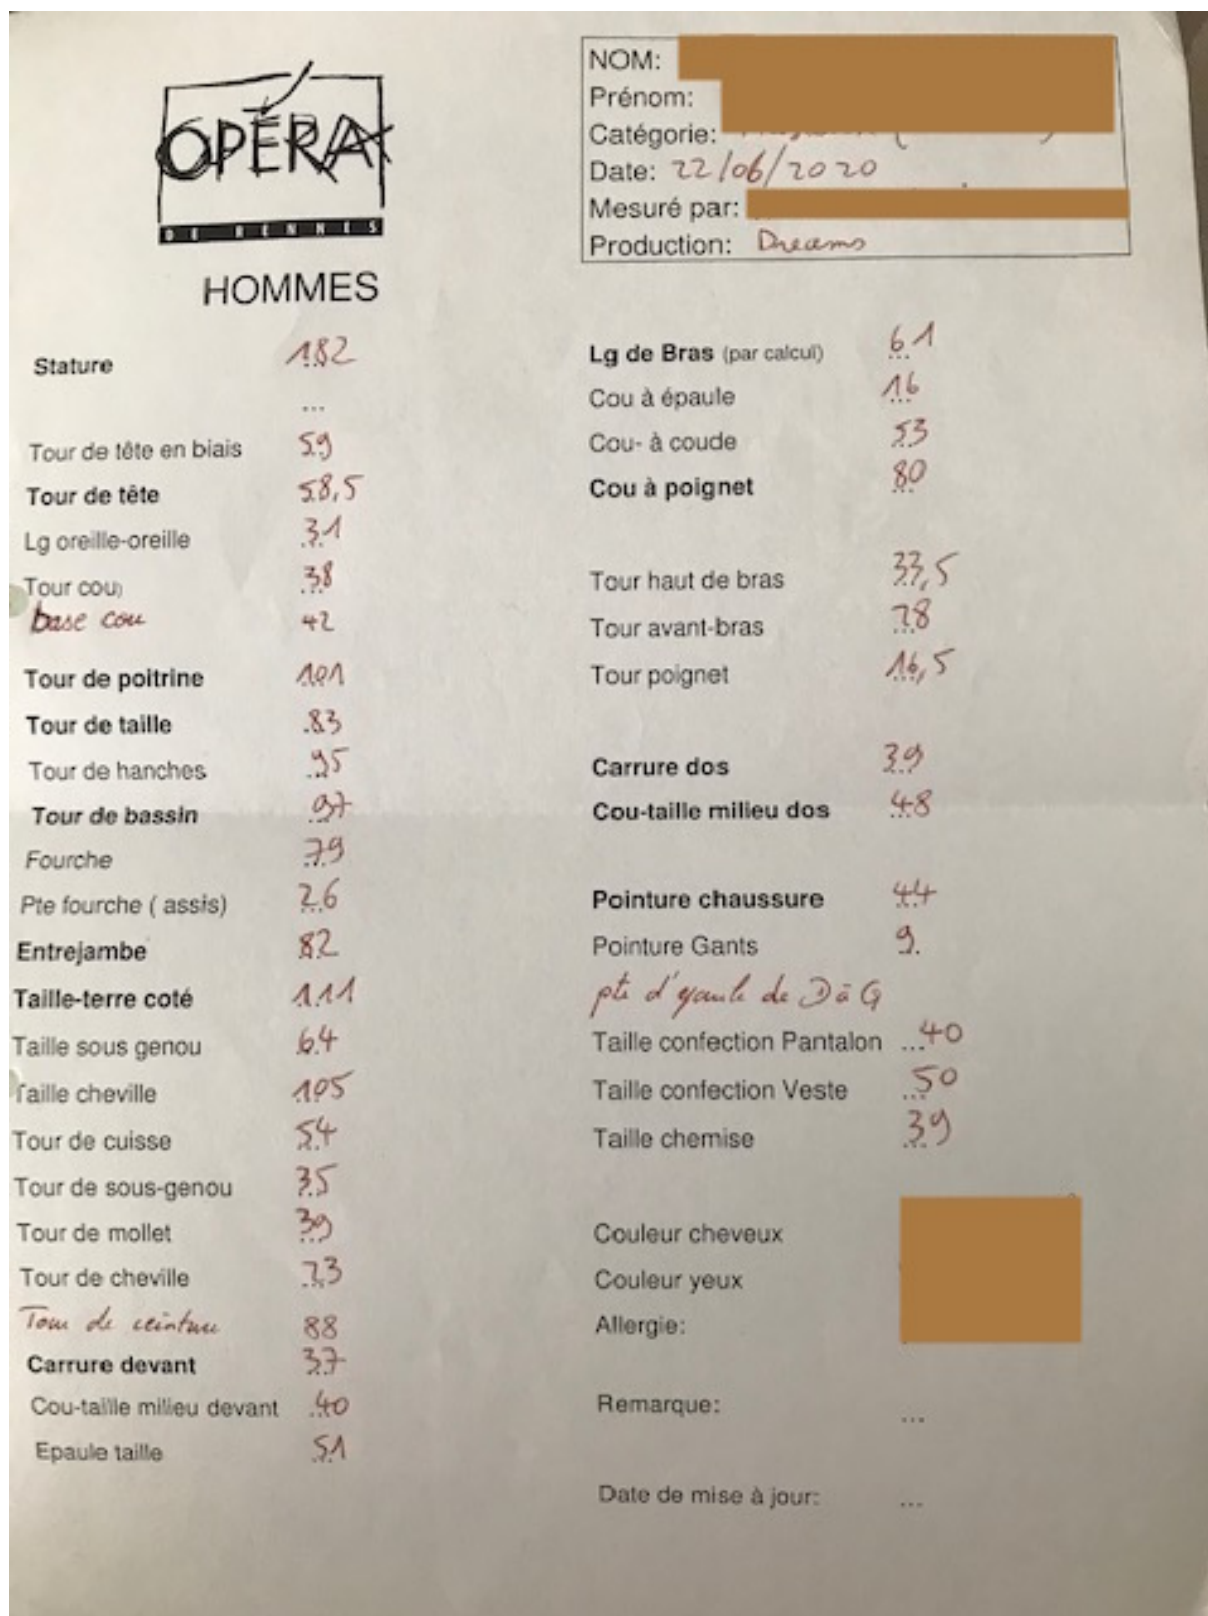 OPÉRA
DE RENNES
HOMMES
NOM:
Prénom:
Catégorie:
Date: 22/06/2020
Mesuré par:
Production: Dreams
Stature 182
...
Tour de tête en biais 59
Tour de tête 58,5
Lg oreille-oreille 31
Tour cou) 38
base cou 42
Tour de poitrine 101
Tour de taille 83
Tour de hanches 95
Tour de bassin 97
Fourche 79
Pte fourche ( assis) 26
Entrejambe 82
Taille-terre coté 111
Taille sous genou 64
Taille cheville 105
Tour de cuisse 54
Tour de sous-genou 35
Tour de mollet 39
Tour de cheville 23
Tour de ceinture 88
Carrure devant 37
Cou-taille milieu devant 40
Epaule taille 51
Lg de Bras (par calcul) 61
Cou à épaule 16
Cou- à coude 53
Cou à poignet 80
Tour haut de bras 33,5
Tour avant-bras 28
Tour poignet 16,5
Carrure dos 39
Cou-taille milieu dos 48
Pointure chaussure 44
Pointure Gants 9
pte d'épaule de D à G
Taille confection Pantalon ...40
Taille confection Veste 50
Taille chemise 39
Couleur cheveux
Couleur yeux
Allergie:
Remarque: ...
Date de mise à jour: ...